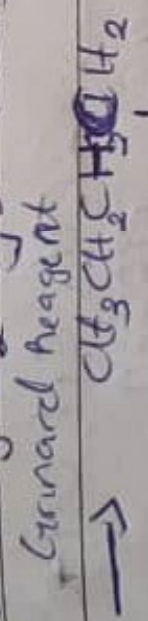 Grinard Reagent
→ CH₃CH₂CH₂CH₂